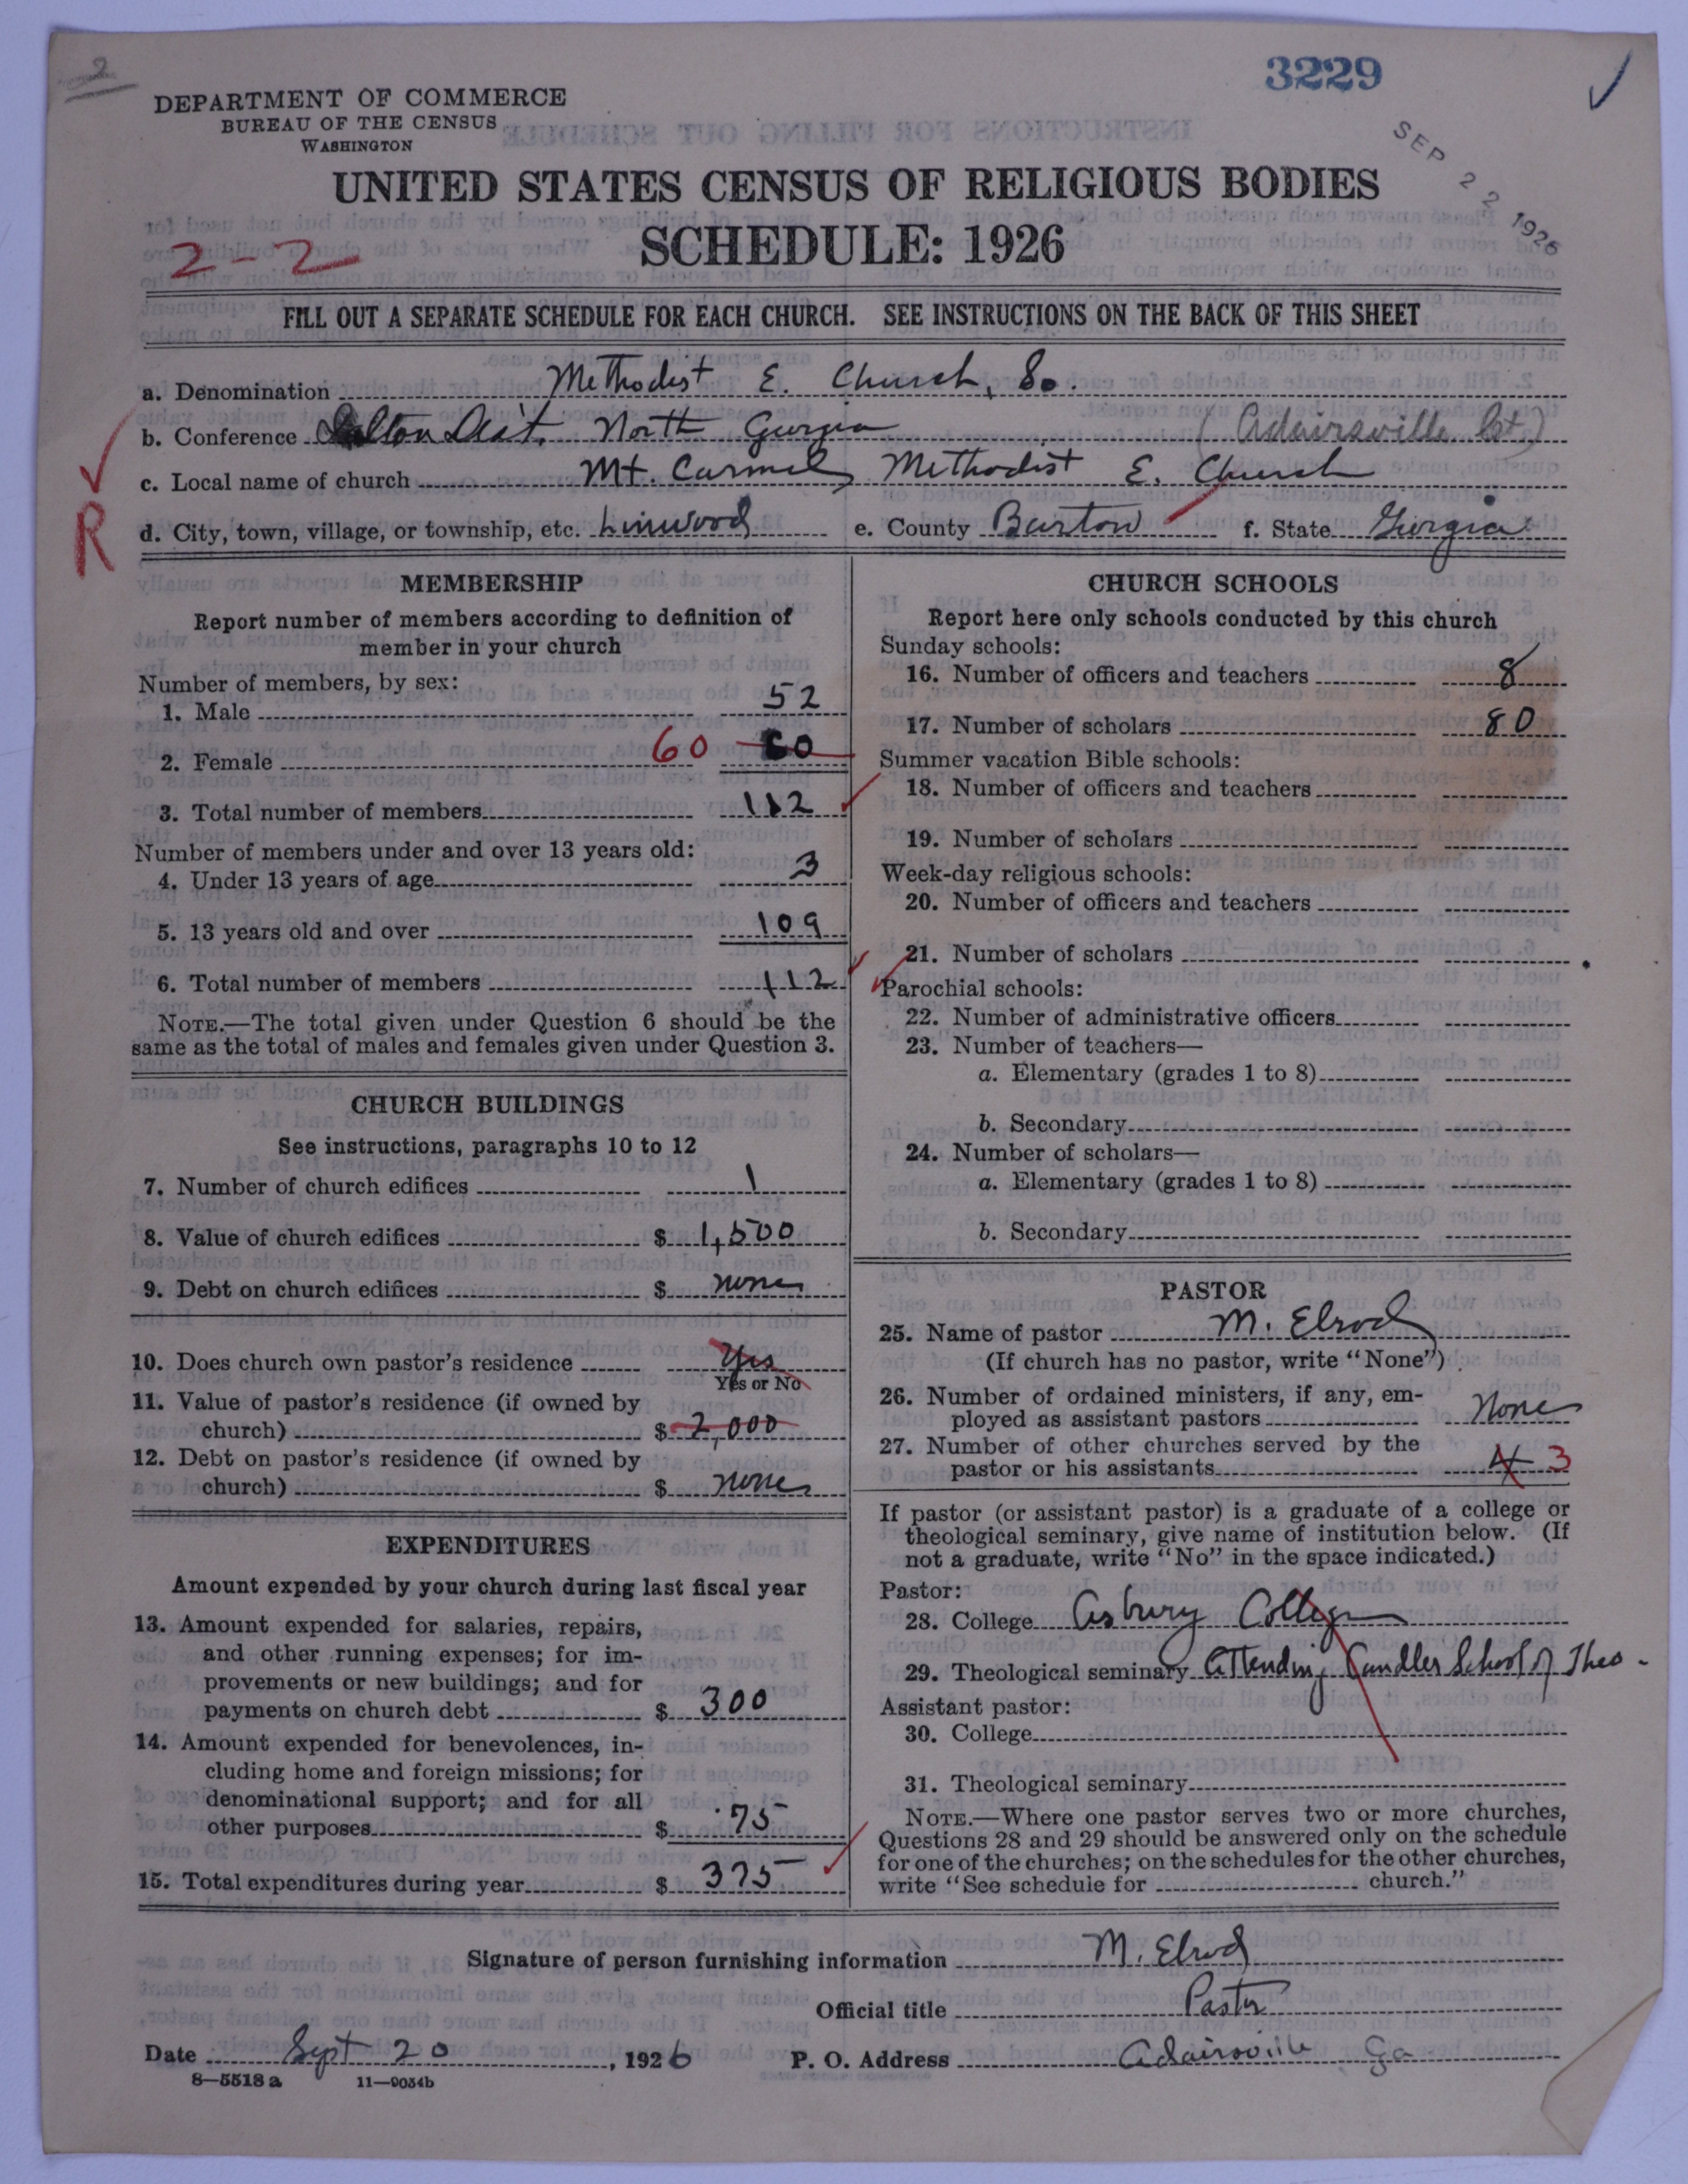 2
3229
DEPARTMENT OF COMMERCE
BUREAU OF THE CENSUS
WASHINGTON
SEP 22 1926
UNITED STATES CENSUS OF RELIGIOUS BODIES
SCHEDULE: 1926
2-2
FILL OUT A SEPARATE SCHEDULE FOR EACH CHURCH. SEE INSTRUCTIONS ON THE BACK OF THIS SHEET
a. Denomination Methodist E. Church, So.
b. Conference Dalton Dist. North Georgia (Adairsville Ct)
c. Local name of church Mt. Carmel Methodist E. Church
R
d. City, town, village, or township, etc. Linwood e. County Barton f. State Georgia
MEMBERSHIP
Report number of members according to definition of
member in your church
Number of members, by sex:
1. Male 52
2. Female 60 60
3. Total number of members 112
Number of members under and over 13 years old:
4. Under 13 years of age 3
5. 13 years old and over 109
6. Total number of members 112
NOTE.—The total given under Question 6 should be the
same as the total of males and females given under Question 3.
CHURCH BUILDINGS
See instructions, paragraphs 10 to 12
7. Number of church edifices 1
8. Value of church edifices $ 1,500
9. Debt on church edifices $ none
10. Does church own pastor's residence Yes
Yes or No
11. Value of pastor's residence (if owned by
church) $ 2,000
12. Debt on pastor's residence (if owned by
church) $ none
EXPENDITURES
Amount expended by your church during last fiscal year
13. Amount expended for salaries, repairs,
and other running expenses; for im-
provements or new buildings; and for
payments on church debt $ 300
14. Amount expended for benevolences, in-
cluding home and foreign missions; for
denominational support; and for all
other purposes $ 75
15. Total expenditures during year $ 375
CHURCH SCHOOLS
Report here only schools conducted by this church
Sunday schools:
16. Number of officers and teachers 8
17. Number of scholars 80
Summer vacation Bible schools:
18. Number of officers and teachers
19. Number of scholars
Week-day religious schools:
20. Number of officers and teachers
21. Number of scholars
Parochial schools:
22. Number of administrative officers
23. Number of teachers—
a. Elementary (grades 1 to 8)
b. Secondary
24. Number of scholars—
a. Elementary (grades 1 to 8)
b. Secondary
PASTOR
25. Name of pastor M. Elrod
(If church has no pastor, write "None")
26. Number of ordained ministers, if any, em-
ployed as assistant pastors None
27. Number of other churches served by the
pastor or his assistants 4 3
If pastor (or assistant pastor) is a graduate of a college or
theological seminary, give name of institution below. (If
not a graduate, write "No" in the space indicated.)
Pastor:
28. College Asbury College
29. Theological seminary Attending Candler School of Theo.
Assistant pastor:
30. College
31. Theological seminary
NOTE.—Where one pastor serves two or more churches,
Questions 28 and 29 should be answered only on the schedule
for one of the churches; on the schedules for the other churches,
write "See schedule for church."
Signature of person furnishing information M. Elrod
Official title Pastor
Date Sept 20, 1926 P. O. Address Adairsville Ga
8—5518a 11—9034b